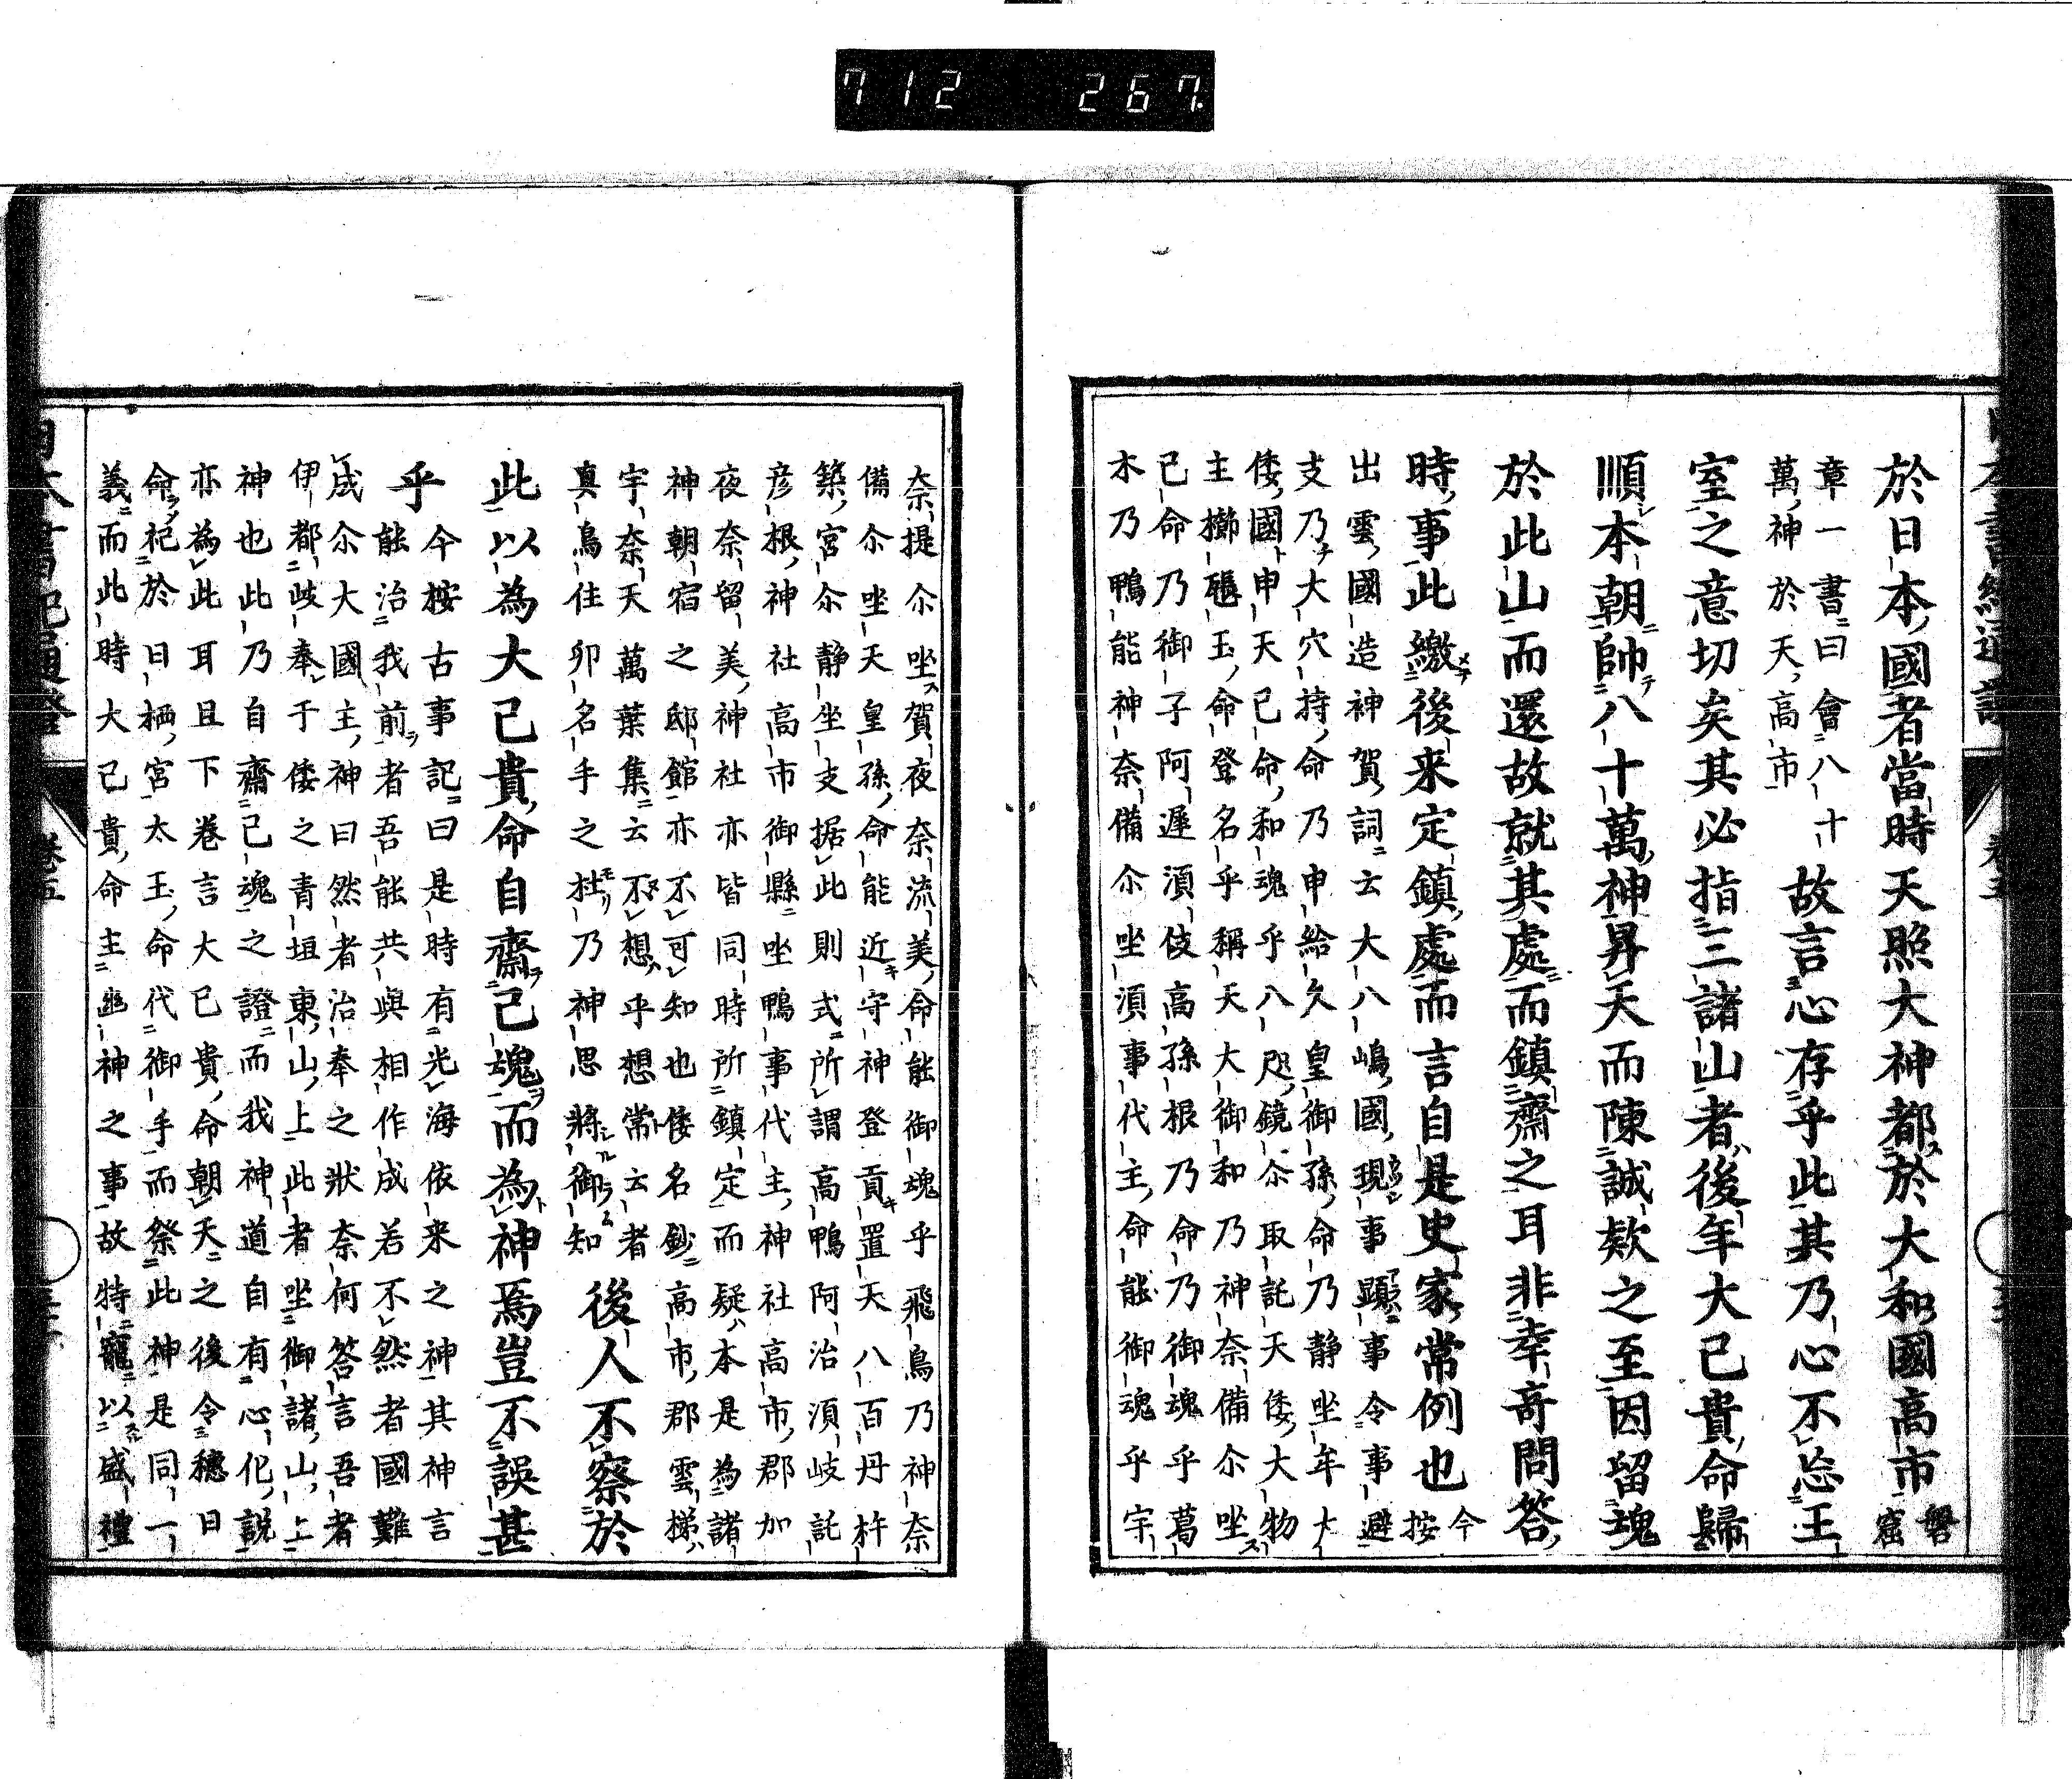 712 267
於日本國者當時天照大神都於大和國高市磐窟
章一書曰會八十萬神於天高市故言心存乎此其乃心不忘王
室之意切矣其必指三諸山者後年大己貴命歸
順本朝帥八十萬神昇天而陳誠欵之至因留魂
於此山而還故就其處而鎮齋之耳非幸奇問答
時事此繳後来定鎮處而言自是史家常例也今按
出雲國造神賀詞云大八嶋國現事顯事令事避
支乃大穴持命乃申給久皇御孫命乃静坐牟大
倭國申天己命和魂乎八咫鏡尒取託天倭大物
主櫛𤭖玉命登名乎稱天大御和乃神奈備尒坐
己命乃御子阿遅須伎高孫根乃命乃御魂乎葛
木乃鴨能神奈備尒坐須事代主命能御魂乎宇
奈提尒坐賀夜奈流美命能御魂乎飛鳥乃神奈
備尒坐天皇孫命能近守神登貢置天八百丹杵
築宮尒静坐支据此則式所謂高鴨阿治須岐託
彦根神社高市御縣坐鴨事代主神社高市郡加
夜奈留美神社亦皆同時所鎮定而疑本是為諸
神朝宿之邸館亦不可知也倭名鈔高市郡雲梯
宇奈天萬葉集云不想乎想常云者
真鳥住卯名手之杜乃神思將御知後人不察於
此以為大己貴命自齋己魂而為神焉豈不誤甚
乎今按古事記曰是時有光海依来之神其神言
能治我前者吾能共與相作成若不然者國難
成尒大國主神曰然者治奉之狀奈何答言吾者
伊都岐奉于倭之青垣東山上此者坐御諸山上
神也此乃自齋己魂之證而我神道自有心化説
亦為此耳且下巻言大己貴命朝天之後令穂日
命祀於日栖宮太玉命代御手而祭此神是同一
義而此時大己貴命主幽神之事故特寵以盛禮